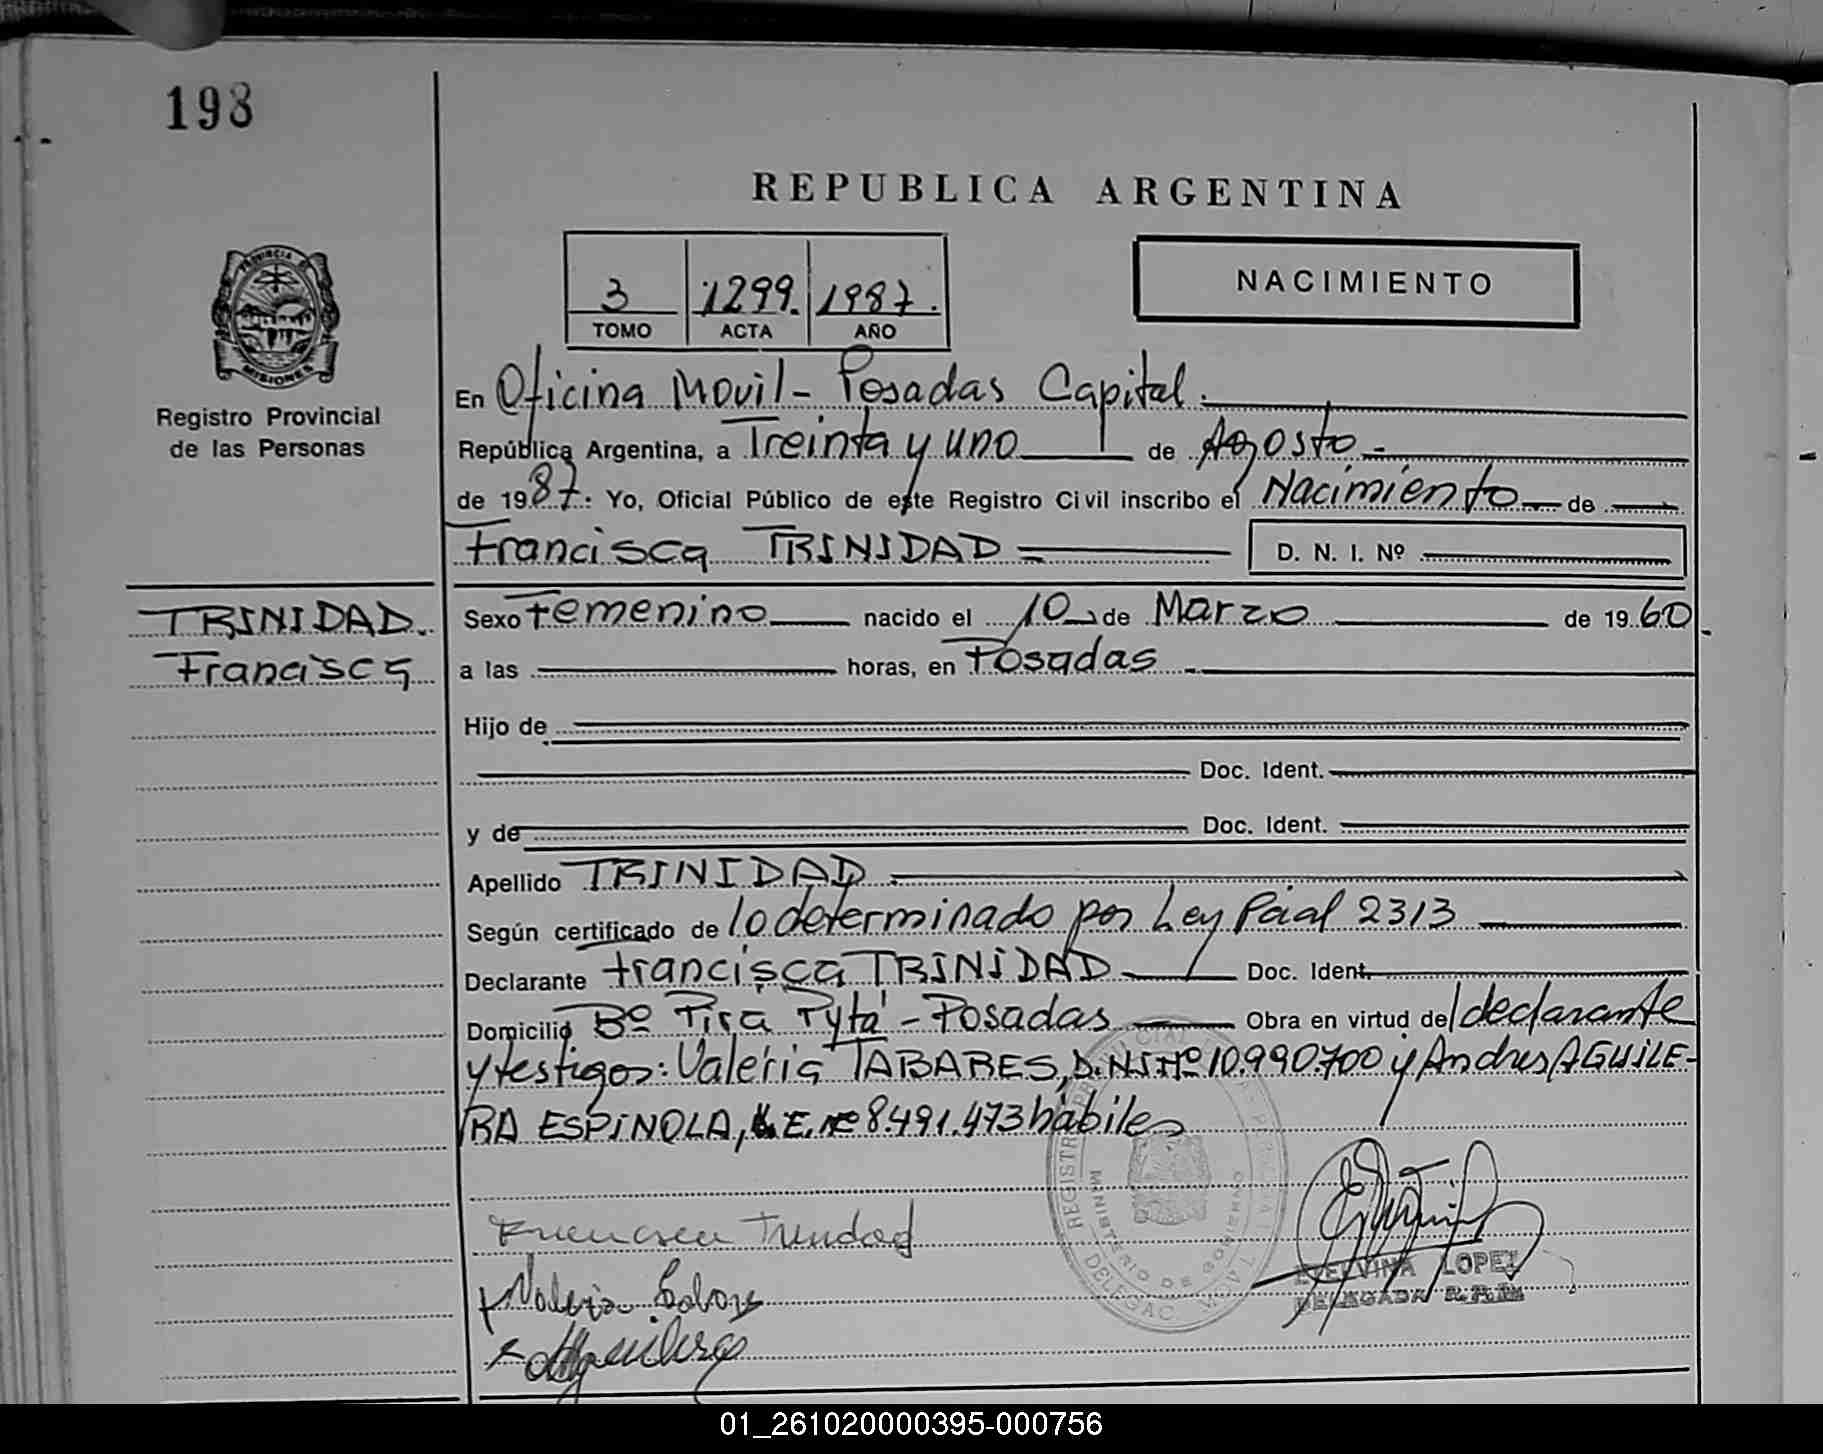 198
REPUBLICA ARGENTINA
PROVINCIA DE
MISIONES
Registro Provincial
de las Personas
3 1299. 1987.
TOMO ACTA AÑO
NACIMIENTO
En Oficina Movil - Posadas Capital.
República Argentina, a Treinta y uno de Agosto -
de 1987. Yo, Oficial Público de este Registro Civil inscribo el Nacimiento de
Francisca TRINIDAD D. N. I. Nº
TRINIDAD.
Francisca
Sexo Femenino nacido el 10 de Marzo de 1960
a las horas, en Posadas -
Hijo de
Doc. Ident.
y de Doc. Ident.
Apellido TRINIDAD
Según certificado de lo determinado por Ley Pcial 2313
Declarante Francisca TRINIDAD Doc. Ident.
Domicilio Bº Pirá Pytá - Posadas Obra en virtud del declarante
y testigos: Valeria TABARES, D.N.I.Nº 10.990.700 y Andres AGUILE-
RA ESPINOLA, L.E. Nº 8.491.473 hábiles
Francisca Trinidad
Valeria
Aguilera
MINISTERIO DE GOBIERNO
ETELVINA LOPEZ
DELEGADA R.P.P.
01_261020000395-000756